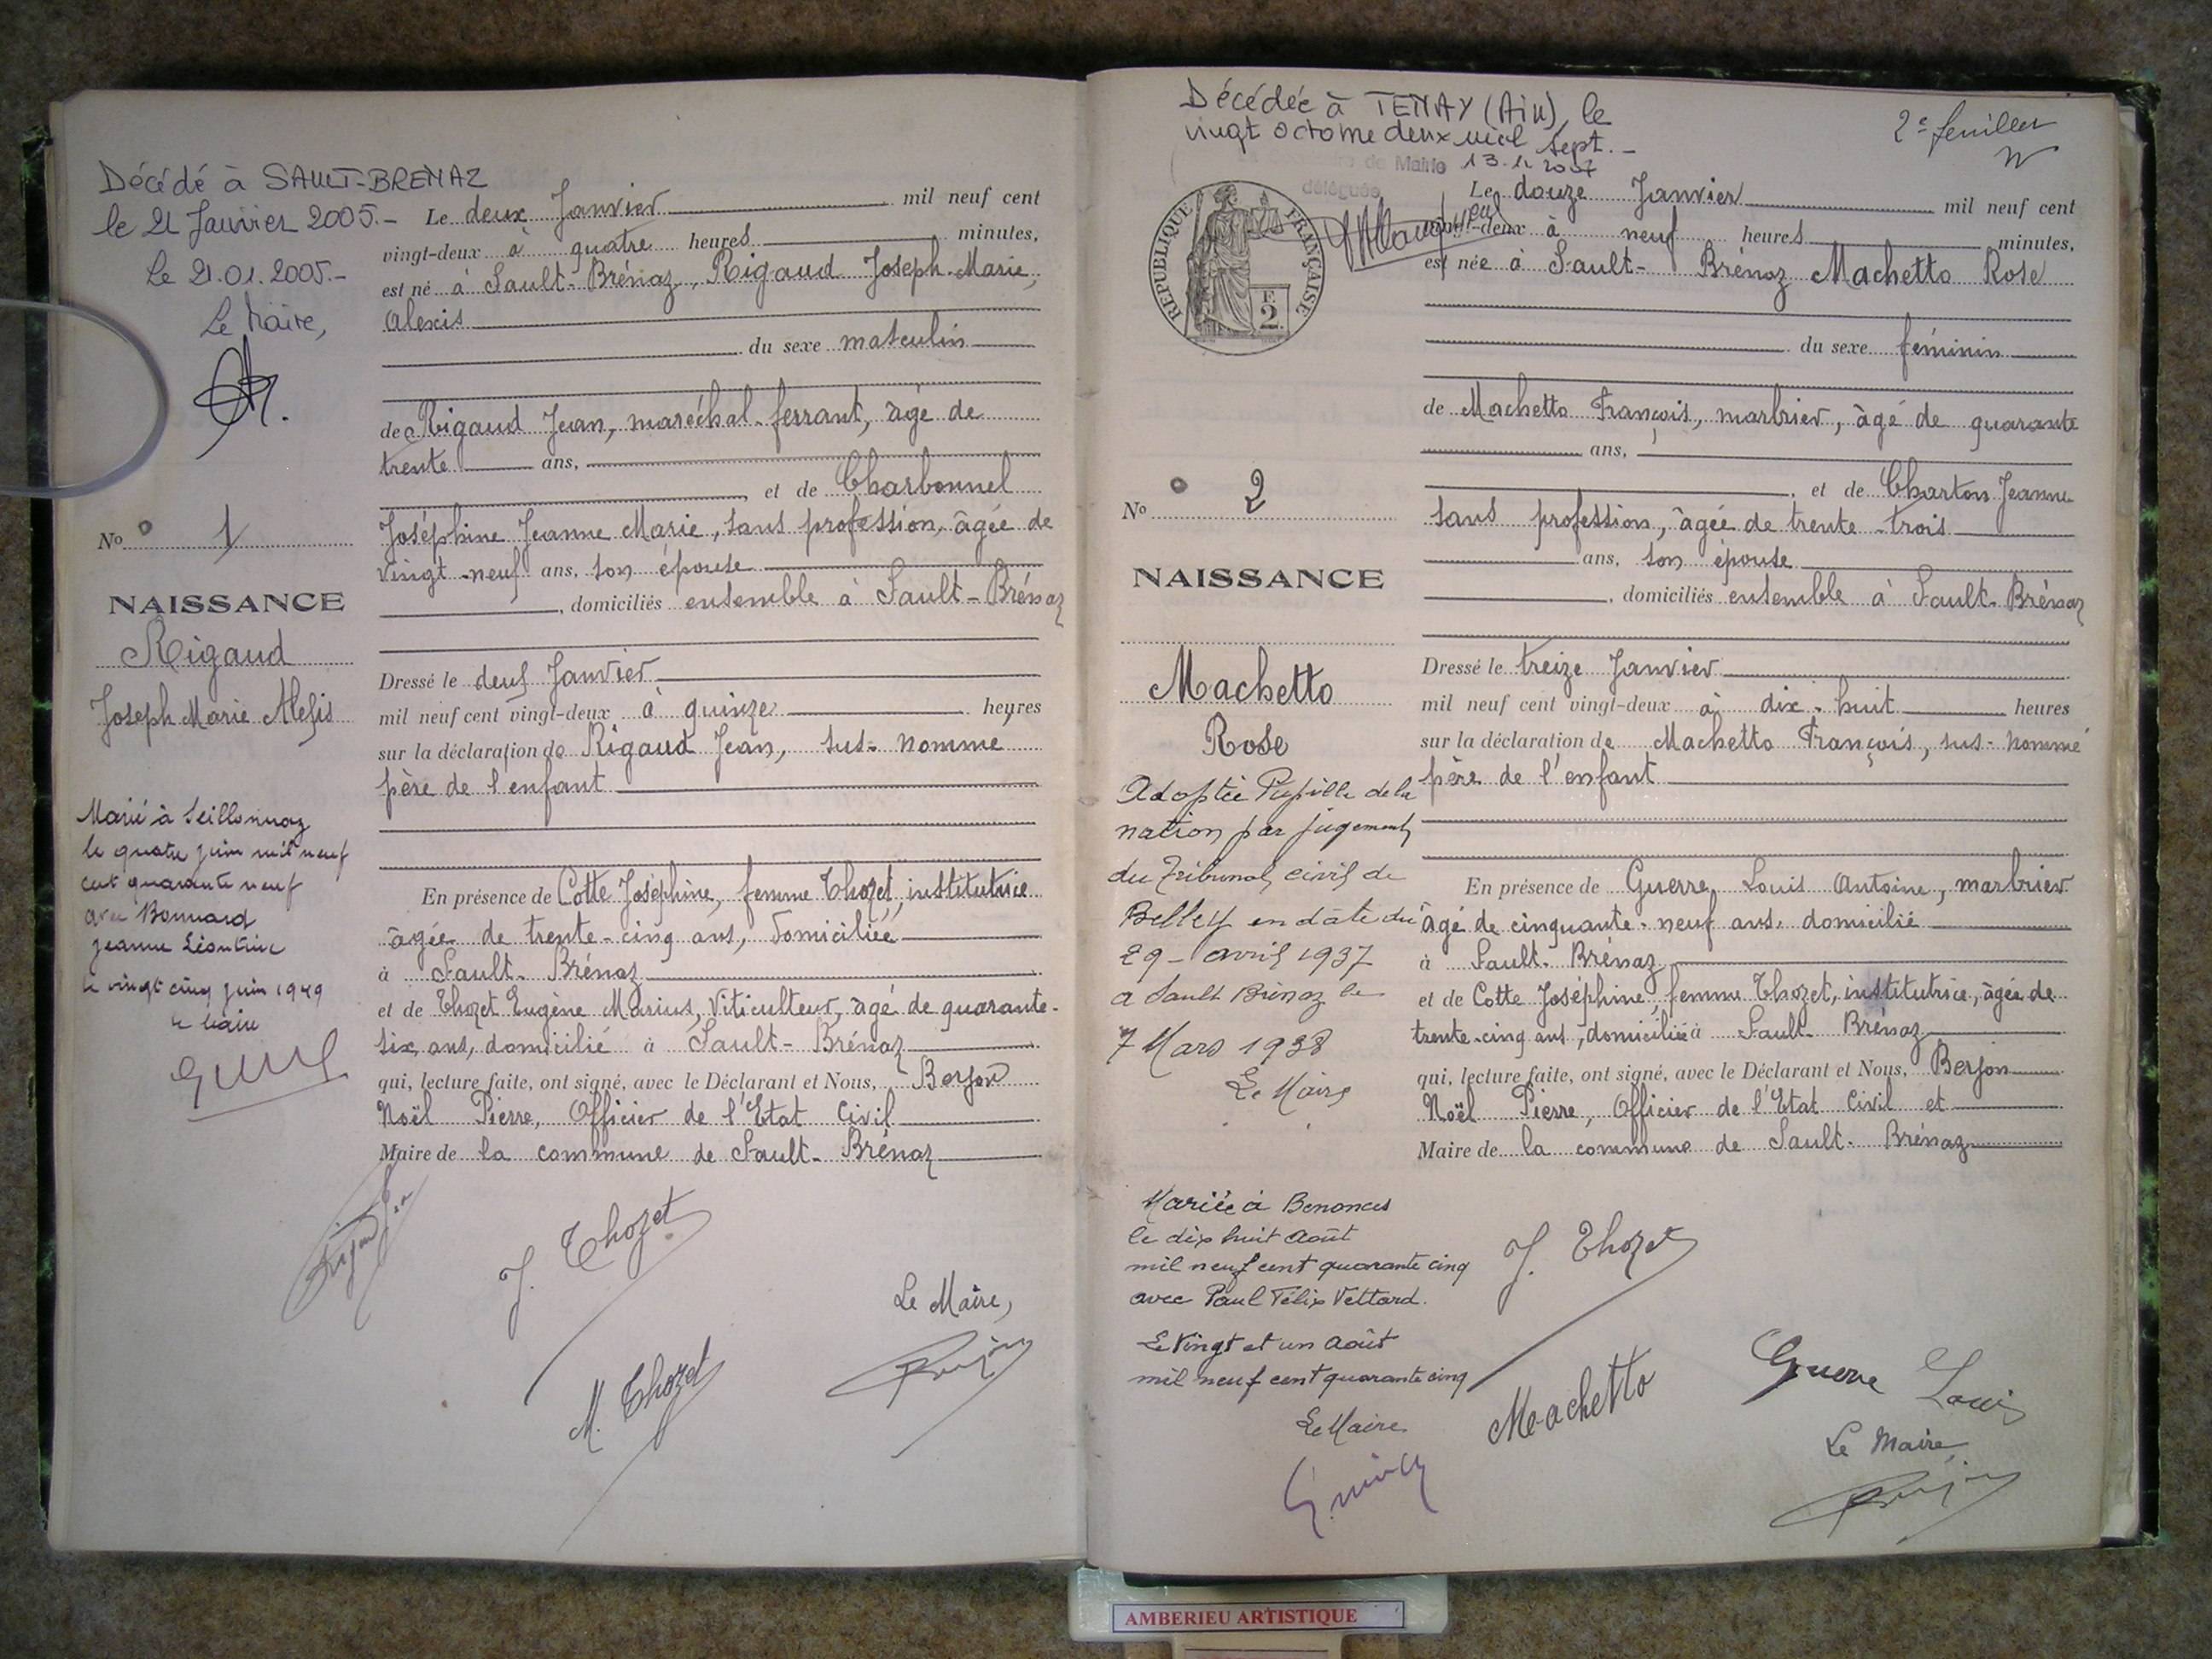 Décédé à SAULT-BRENAZ
le 21 Janvier 2005.-
Le 21.01.2005.-
Le Maire,
No 1
NAISSANCE
Rigaud
Joseph Marie Alexis
Marié à Seillonnaz
le quatre juin mil neuf
cent quarante neuf
avec Bonnard
Jeanne Léontine
le vingt cinq juin 1949
le Maire
Le deux Janvier mil neuf cent
vingt-deux à quatre heures minutes,
est né à Sault-Brénaz, Rigaud Joseph-Marie,
Alexis
du sexe masculin
de Rigaud Jean, maréchal-ferrant, âgé de
trente ans,
et de Charbonnel
Joséphine Jeanne Marie, sans profession, âgée de
vingt-neuf ans, son épouse
, domiciliés ensemble à Sault-Brénaz
Dressé le deux Janvier
mil neuf cent vingt-deux à quinze heures
sur la déclaration de Rigaud Jean, sus-nommé
père de l'enfant
En présence de Cotte Joséphine, femme Thozet, institutrice
âgée de trente-cinq ans, domiciliée
à Sault-Brénaz
et de Thozet Eugène Marius, Viticulteur, âgé de quarante-
six ans, domicilié à Sault-Brénaz
qui, lecture faite, ont signé, avec le Déclarant et Nous, Berjon
Noël Pierre, Officier de l'Etat Civil
Maire de la commune de Sault-Brénaz
J. Thozet
Le Maire,
M. Thozet
Décédée à TENAY (Ain), le
vingt octobre deux mil sept.-
de Mairie 13.11.2007
déléguée
2e feuillet
RÉPUBLIQUE FRANÇAISE
F
2
No 2
NAISSANCE
Machetto
Rose
Adoptée Pupille de la
nation par jugement
du Tribunal civil de
Belley en date du
29 avril 1937
a Sault Brénaz le
7 Mars 1938
Le Maire
Mariée à Benonces
le dix huit Août
mil neuf cent quarante cinq
avec Paul Félix Vettard.
Le Vingt et un Août
mil neuf cent quarante cinq
Le Maire
Le douze Janvier mil neuf cent
vingt-deux à neuf heures minutes,
est née à Sault-Brénaz Machetto Rose
du sexe féminin
de Machetto François, marbrier, âgé de quarante
ans,
, et de Charton Jeanne
sans profession, âgée de trente-trois
ans, son épouse
, domiciliés ensemble à Sault-Brénaz
Dressé le treize Janvier
mil neuf cent vingt-deux à dix-huit heures
sur la déclaration de Machetto François, sus-nommé
père de l'enfant
En présence de Guerre Louis Antoine, marbrier
âgé de cinquante-neuf ans, domicilié
à Sault-Brénaz
et de Cotte Joséphine, femme Thozet, institutrice, âgée de
trente-cinq ans, domiciliée à Sault-Brénaz
qui, lecture faite, ont signé, avec le Déclarant et Nous, Berjon
Noël Pierre, Officier de l'Etat Civil et
Maire de la commune de Sault-Brénaz
J. Thozet
Machetto
Guerre Louis
Le Maire
AMBERIEU ARTISTIQUE